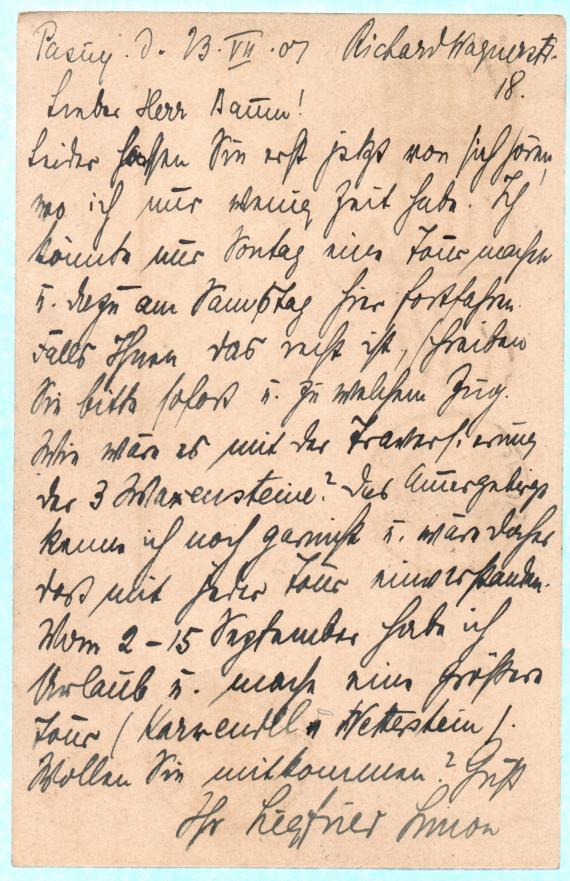 Pasing d. 23.VII.07 Richard Wagnerstr.
18.
Lieber Herr Baum!
Leider lassen Sie erst jetzt von sich hören,
wo ich nur wenig Zeit habe. Ich
könnte nur Sontag eine Tour machen
u. dazu am Samstag hier fortfahren.
Falls Ihnen das recht ist, schreiben
Sie bitte sofort u. zu welchem Zug.
Wie wäre es mit der Traversierung
der 3 Waxensteine? Das Amergebirge
kenne ich noch garnicht u. wäre daher
dort mit jeder Tour einverstanden.
Vom 2-15 September habe ich
Urlaub u. mache eine größere
Tour (Karwendel u Wetterstein).
Wollen Sie mitkommen? Gruß
Ihr Siegfried Simon